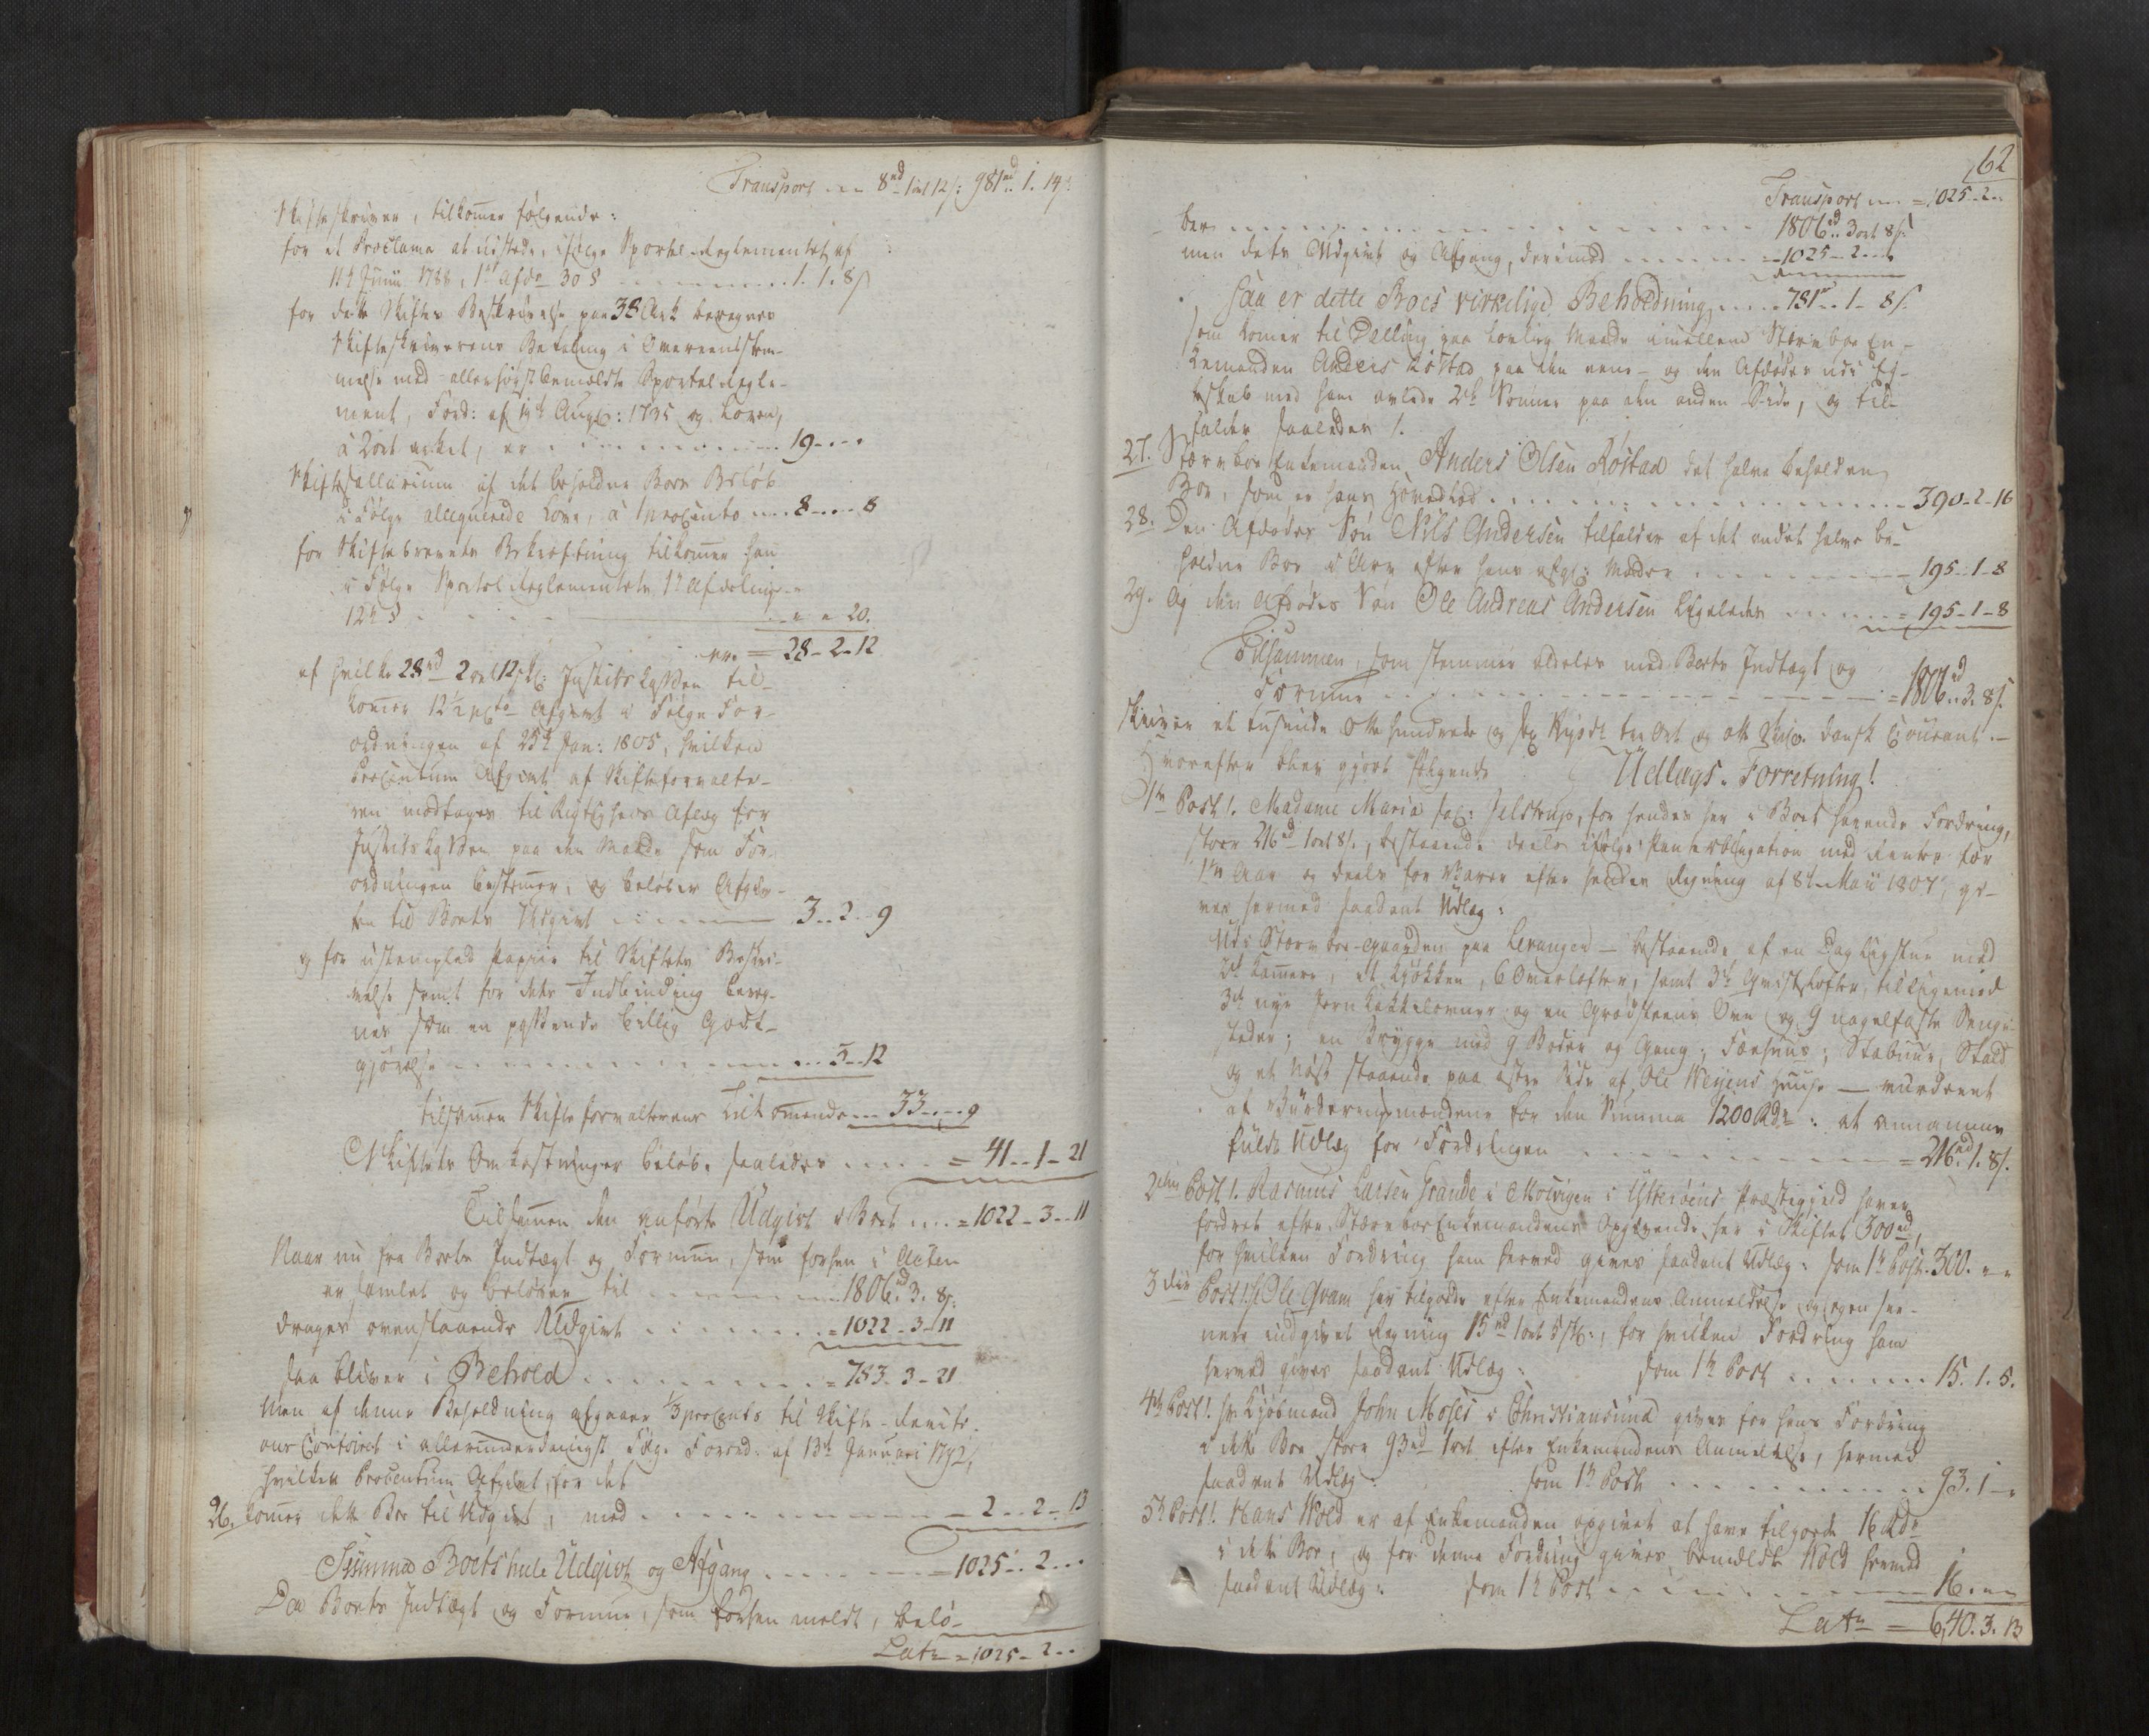 Transport --- 8rd 1ort 12s: 981rd. 1. 14s
Skifteskriver, tilkom̄er følgende:
for et Proclama at udstede, ifølge Sportel-Reglementet af
11te Junii 1788, 1te Afdn 30 § ---- 1. 1. 8s
for dette Skiftes Beskrivelse paa 38 Ark beregnes
Skifteskriverens Betaling i Overeensstem-
melse med allerhøgstbemældte Sportel Regle-
ment, Ford: af 19de Augs: 1735 og Loven,
á 2ort arket, er ---- 19 - - -
Skiftesallarium af det beholdne Boes Beløb
i Følge alleguerede Love, á 1 procento --- 8 - - - 8
for Skiftebrevets Bekræftning tilkom̄er han
i Følge Sportel Reglementets 1te Afdeling
12te § - - - - " " 20.
er = 28 - 2 - 12
af hvilke 28rd 2ort 12sk: Justits Cassen til-
kom̄er 12½ pCto Afgivt i Følge For-
ordningen af 25de Jan: 1805, hvilken
Procentum Afgivt af Skifteforvalte-
ren modtages til Rigtigheds Aflæg for
Justits Cassen paa den Maade som For-
ordningen bestem̄er, og beløber Afgiv-
ten til Boets Udgivt ---- 3 - 2 - 9
og for ustemplad Papiir til Skiftets Beskri-
velse samt for dets Indbinding bereg-
nes som en passende billig Godt-
giørelse ---- 3 - 12
tilsam̄en Skifteforvalterens Tilkomende --- 33 - - - 9
Skiftets Omkostninger beløbe saaledes .... = 41 - 1 - 21
Tilsam̄en den anførte Udgivt i Boet .... = 1022 - 3 - 11
Naar nu fra Boets Indtægt og Formue, som forhen i Acten
er samlet og beløber til ---- 1806rd. 3. 8s:
drages ovenstaaende Udgivt ..... = 1022 - 3 - 11
saa bliver i Behold ........ = 783 - 3 - 21
Men af denne Beholdning afgaaer ⅓ procento til Skifte-
ons Contoiret i allerunderdanigst Følge Forord: af 13de Januari 1792,
hvilken Procentum Afgivt, for det
26. kom̄er dette Boe til Udgivt, med ------ 2 - 2 - 13
Sum̄a Boets hele Udgivt og Afgang ------ = 1025 - 2 - -
Da Boets Indtægt og Formue, som forhen meldt, belø-
Lats = 1025 - 2 - -
62
Transport --- = 1025 - 2 -
ber ---- 1806rd. 3ort 8s:
men dets Udgivt og Afgang, derimod ---- = 1025 - 2 - -
Saa er dette Boes virkelige Beholdning --- 781rd - 1 - 8s.
som kom̄er til Deeling paa lovlig Maade imellem Stervboe En-
kemanden Anders Røstad paa den eene - og den Afdødes udi Eg-
teskab med ham avlede 2de Søn̄er paa den anden Side, og til-
falder saaledes /:
27. Stervboe Enkemanden Anders Olsen Røstad det halve beholdne
Boe, som er hans Hovedlod .... 390 - 2 - 16
28. Den Afdødes Søn Nils Andersen tilfalder af det andet halve be-
holdne Boe i Arv efter hans afg: Moder ---- 195 - 1 - 8
29. Og den Afdødes Søn Ole Andreas Andersen ligeledes ---- = 195 - 1 - 8
Tilsammen, som stemmer aldeles med Boets Indtægt og
Formue ---- = 1806rd. 3. 8s.
skriver et tusinde Otte hundrede og sex Rigsdr tre Ort og otte Skil: dansk Courant. -
Hvorefter blev gjort følgende Udlægs-Forretning!
1te Post!. Madame Maria sal: Jelstrup, for hendes her i Boet havende Fordring,
stoer 216rd 1ort 8s., bestaaende deels ifølge Pante obligation med Renter for
1te Aar og deels for Vahrer efter hendes Regning af 8de Maii 1807, gi-
ves hermed saadant Udlæg:
Udi Stervboe-Gaarden paa Levanger - bestaaende af en Dagligstue med
2de Kamere, et Kjøkken, 6 Overlofter, samt 3de Qvistlofter, tilligemed
3de nye Jern Kakkelovner og en Grødsteens Ovn og 9 nagelfaste Senge-
steder; en Brygge med 9 Boder og Gang; Fæehuus; Stabuur, Stald
og et Nøst staaende paa østre Side af Ole Weyens Huuse - vurderet
af Vurderingsmændene for den Summa 1200 Rdr: at annamme
fuldt Udlæg for Fordringen ---- = 216rd. 1. 8s.
2den Post!. Rasmus Larsen Grande i Mosvigen i Ytterøens Præstegield haver
fordret efter Stervboe Enkemandens Opgivende her i Skiftet 300rd,
for hvilken Fordring ham hermed gives saadant Udlæg: som 1te Post. 300. " "
3die Post! Hr Ole Qvam har tilgode efter Enkemandens Anmeldelse og egen se-
nere indgivet Regning 15rd 1ort 5sk:, for hvilken Fordring ham
hermed gives saadant Udlæg: som 1te Post ...... 15. 1. 5.
4de Post!. Hr Kjøbmand John Moses i Christiansund gives for hans Fordring
i dette Boe, stoer 93rd 1ort efter Enkemandens Anmeldelse, hermed
saadant Udlæg: som 1te Post ...... 93. 1 - "
5te Post!. Hans Wold er af Enkemanden opgivet at have tilgode 16 Rdr
i dette Boe, og for denne Fordring gives bemældte Wold hermed
saadant Udlæg: som 1te Post ---- 16. " "
Lats = 640. 3. 13